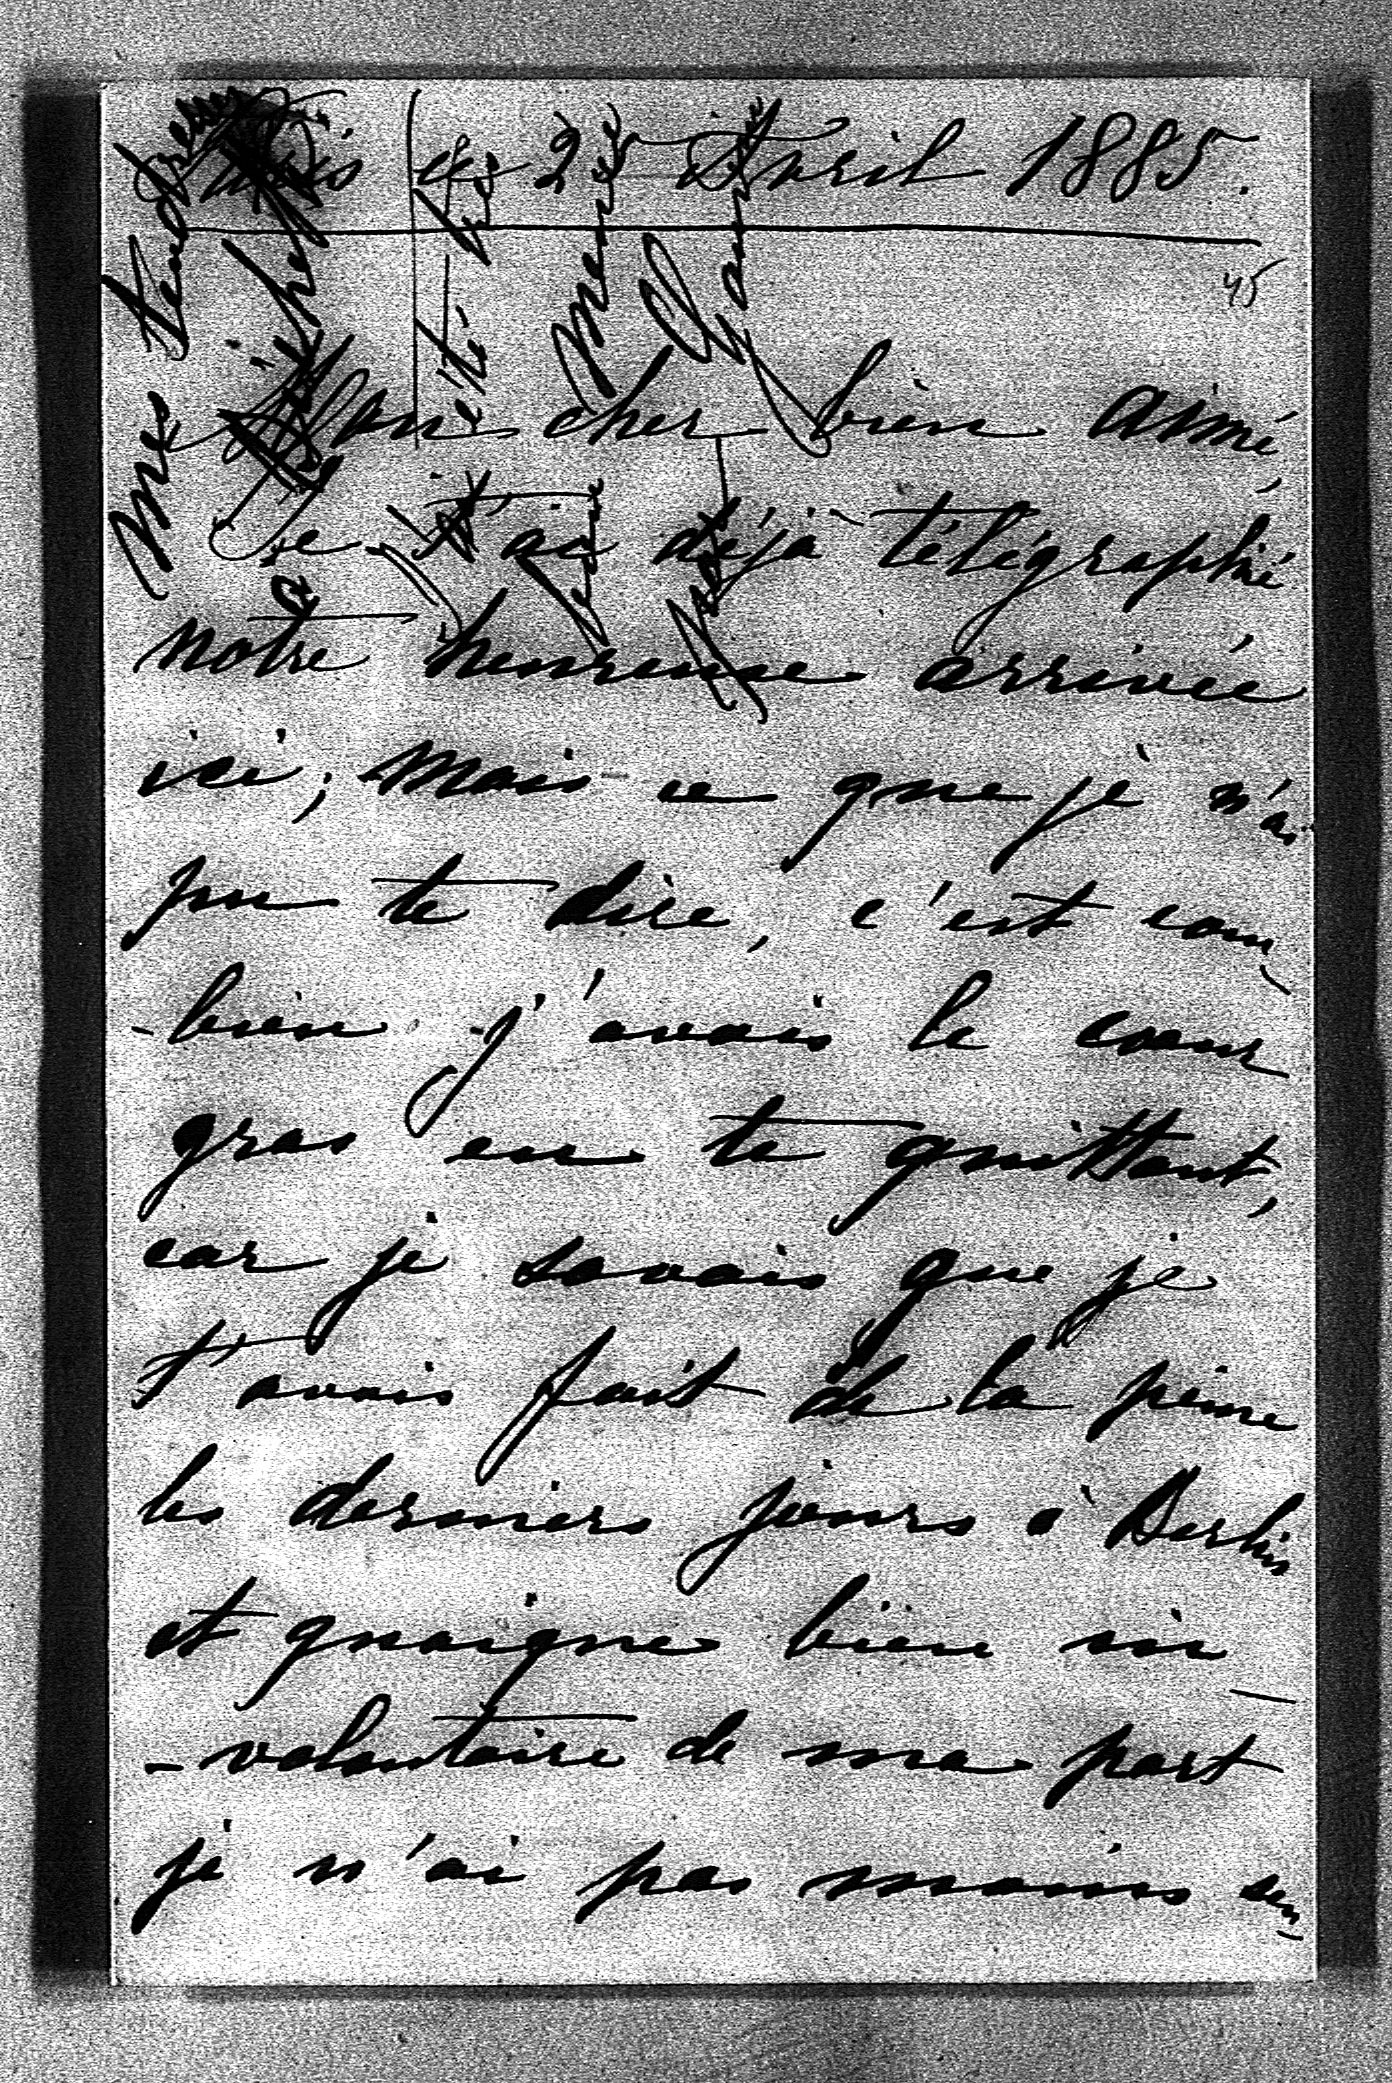 Paris le 25 Avril 1885.
45
Mon cher bien aimé,
Je t'ai déjà télégraphié
notre heureuse arrivée
ici; mais ce que je n'ai
pu te dire, c'est com
-bien j'avais le coeur
gros en te quittant,
car je savais que je
t'avais fait de la peine
les derniers jours à Berlin
et quoique bien in
-volontaire de ma part
je n'ai pas moins sen
Mes tendresses